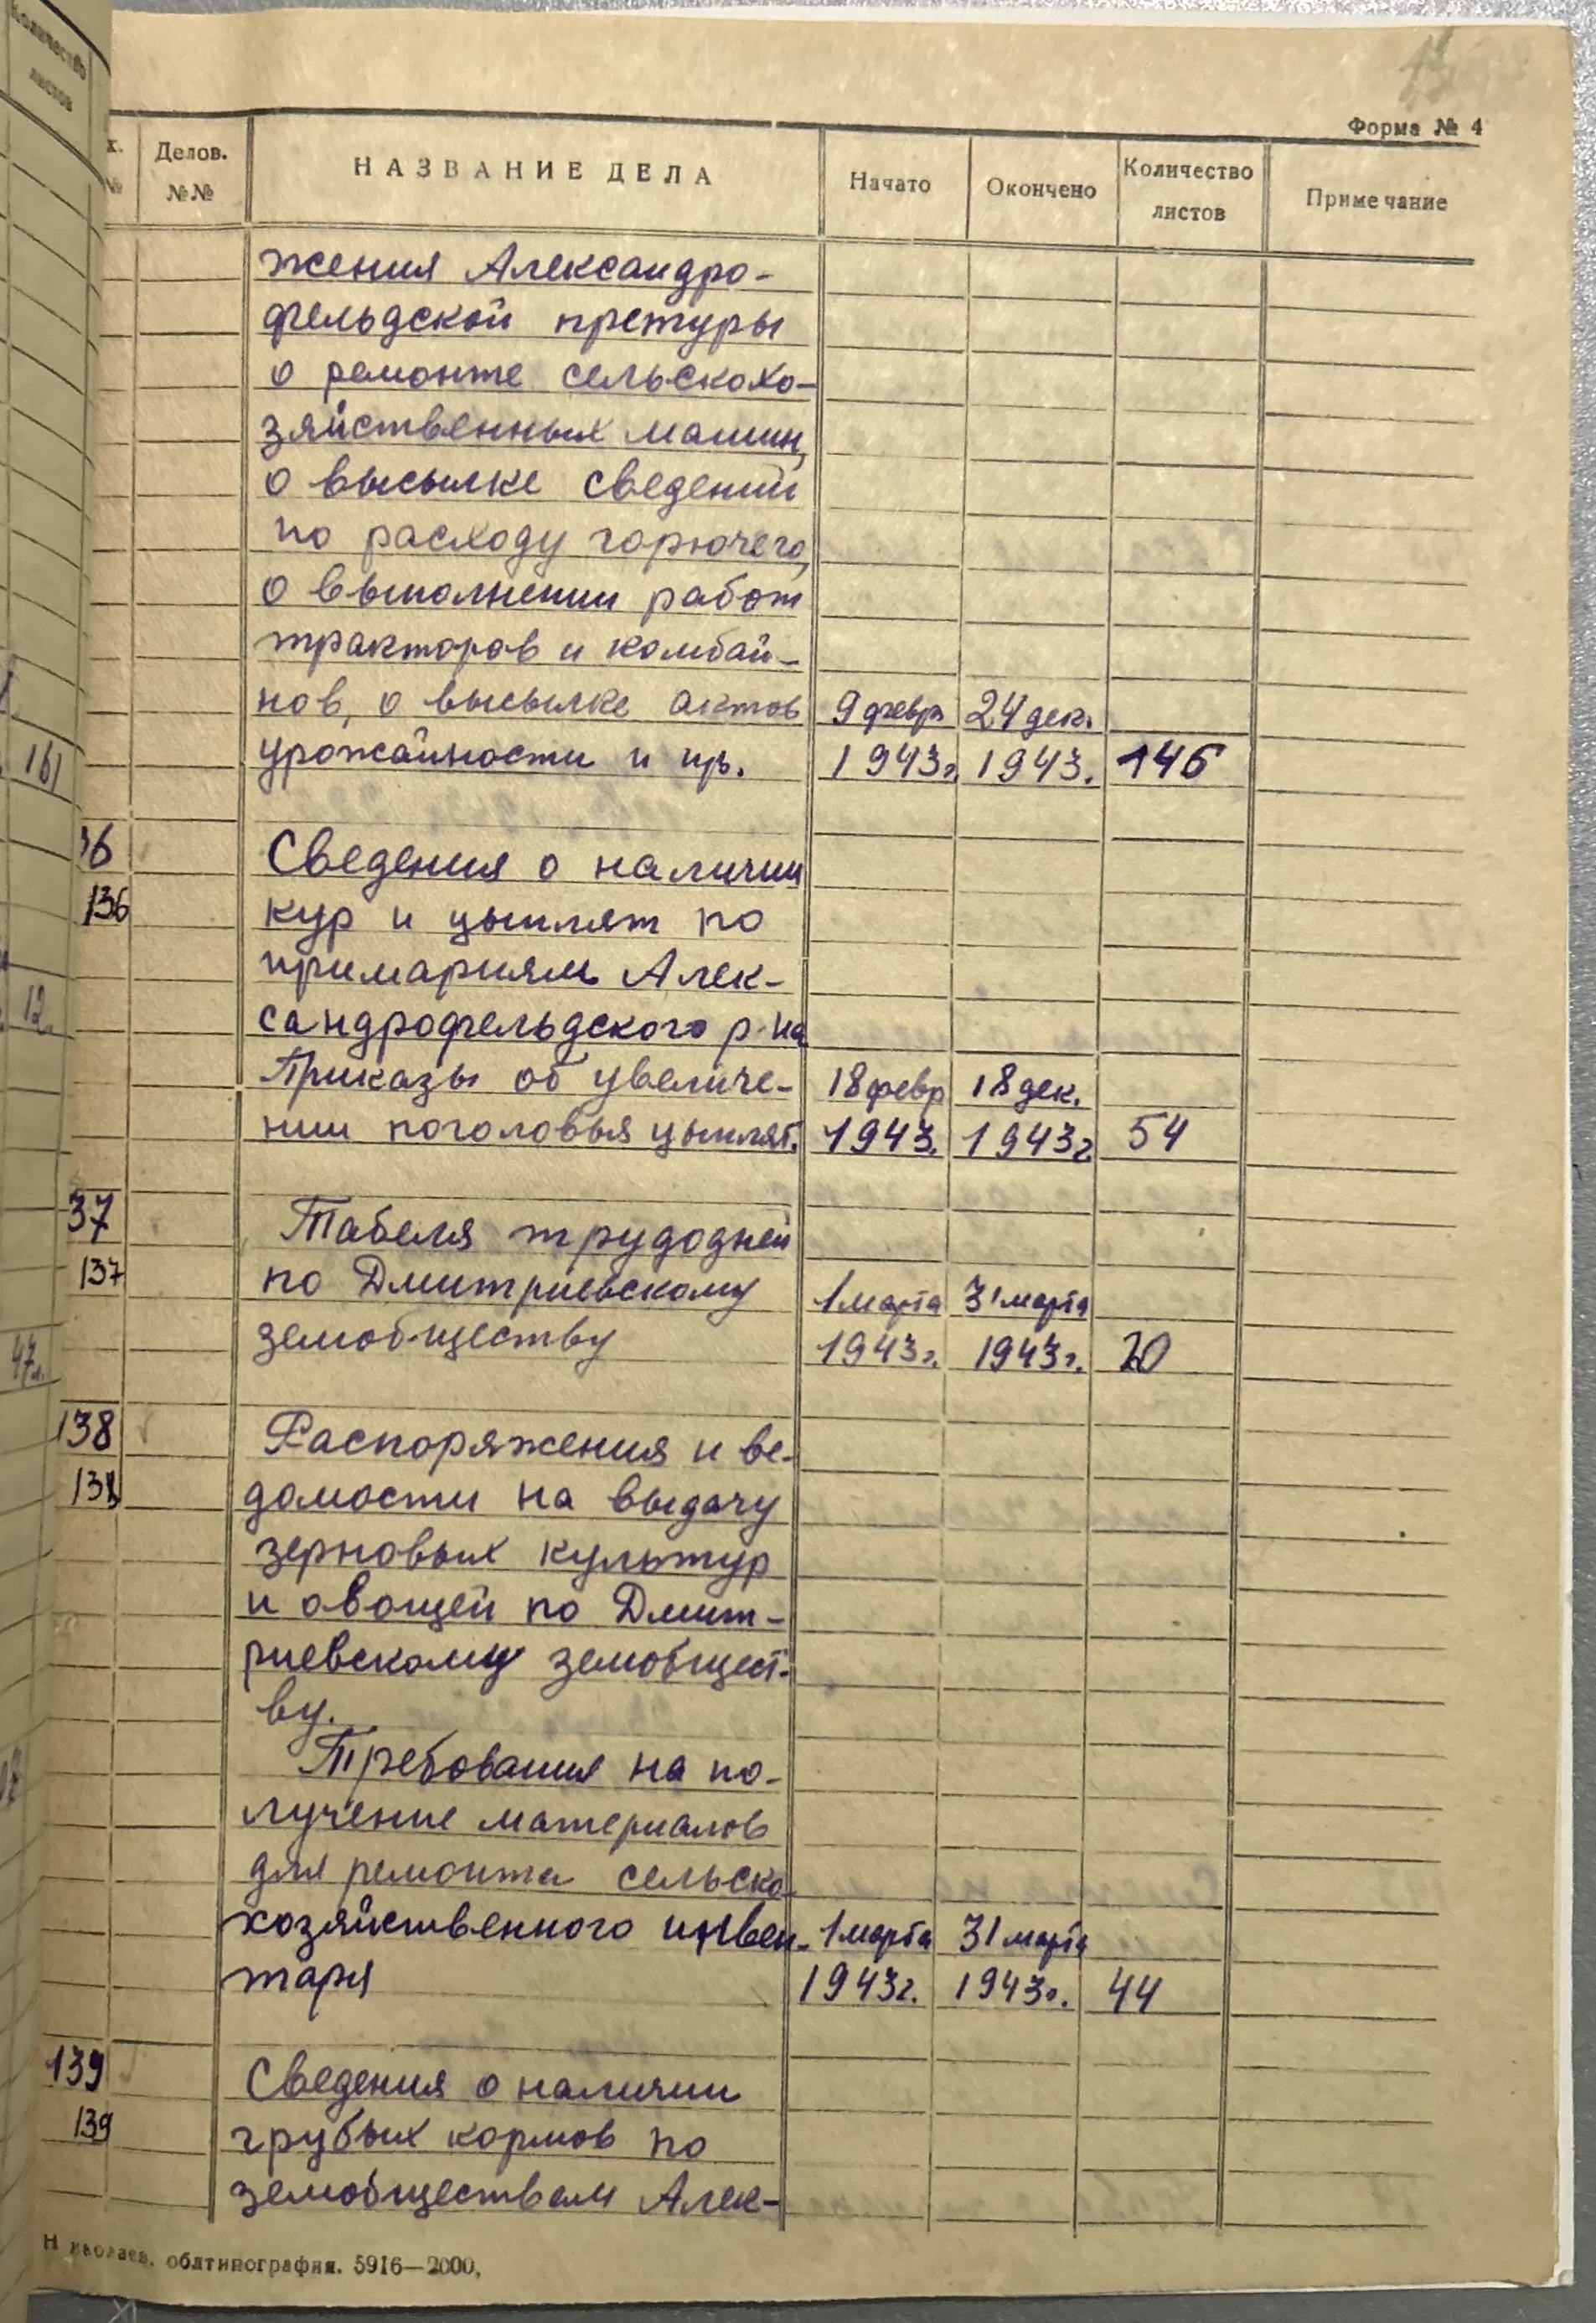 Количество
листов
161
12
47л.
Форма № 4
х. №
Делов. №№
НАЗВАНИЕ ДЕЛА
Начато
Окончено
Количество листов
Примечание
жения Александро-
фельдской претуры
о ремонте сельскохо-
зяйственных машин,
о высылке сведений
по расходу горючего,
о выполнении работ
тракторов и комбай-
нов, о высылке актов 9 февр 24 дек.
урожайности и пр. 1943г. 1943. 146
36 Сведения о наличии
136 кур и цыплят по
примариям Алек-
сандрофельдского р-на
Приказы об увеличе- 18 февр 18 дек.
нии поголовья цыплят. 1943. 1943г. 54
37 Табеля трудодней
137 по Дмитриевскому 1 марта 31 марта
земобществу 1943г. 1943г. 20
138 Распоряжения и ве-
138 домости на выдачу
зерновых культур
и овощей по Дмит-
риевскому земобщест-
ву.
Требования на по-
лучение материалов
для ремонта сельско-
хозяйственного инвен- 1 марта 31 марта
таря 1943г. 1943г. 44
139 Сведения о наличии
139 грубых кормов по
земобществам Алек-
Николаев. облтипография. 5916—2000,